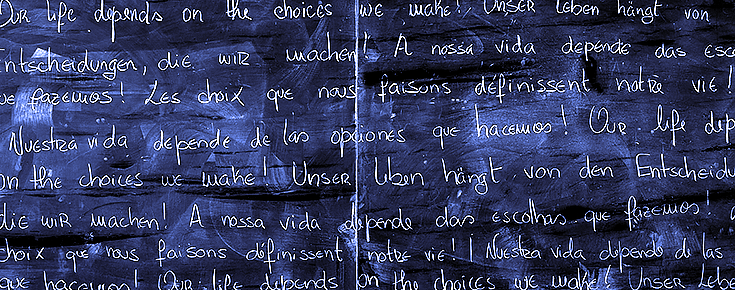 Our life depends on the choices we make! Unser Leben hängt von
Entscheidungen, die wir machen! A nossa vida depende das esco
ue fazemos! Les choix que nous faisons définissent notre vie!
Nuestra vida depende de las opciones que hacemos! Our life dep
on the choices we make! Unser Leben hängt von den Entscheidu
die wir machen! A nossa vida depende das escolhas que fazemos!
choix que nous faisons définissent notre vie! Nuestra vida depende de las
que hacemos! Our life depends on the choices we make! Unser Lebe